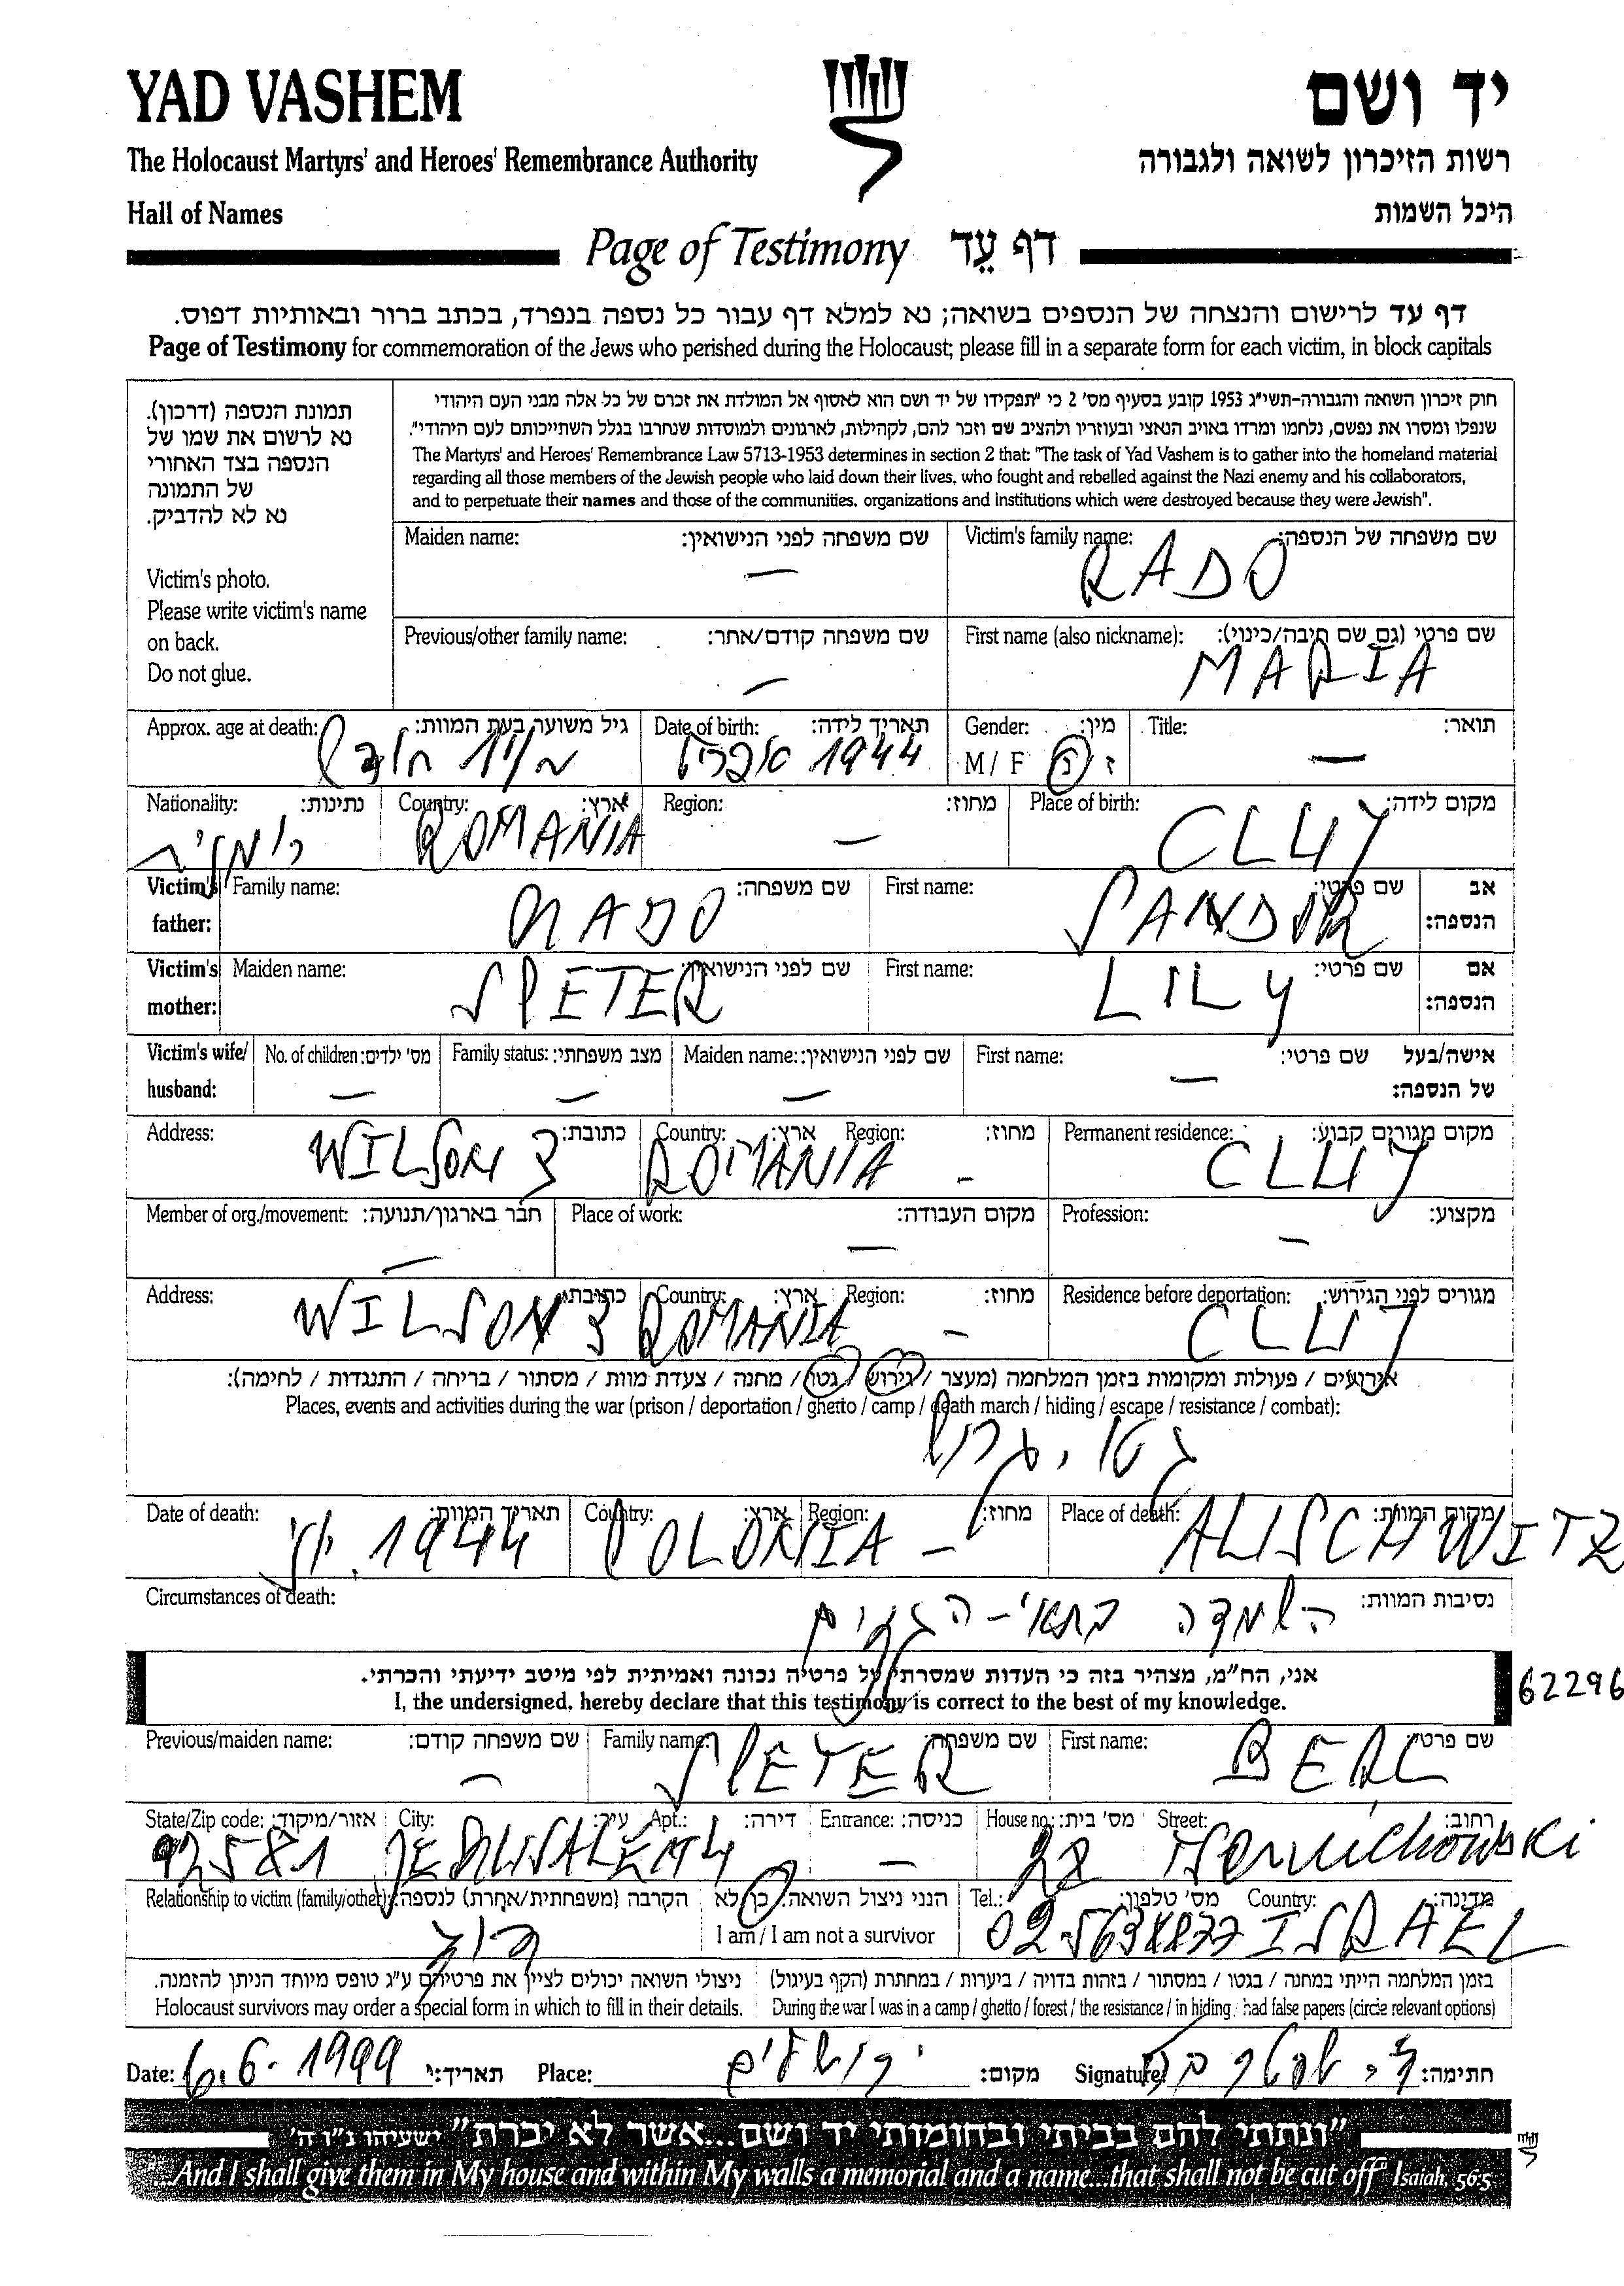 YAD VASHEM יד ושם
The Holocaust Martyrs' and Heroes' Remembrance Authority רשות הזיכרון לשואה ולגבורה
Hall of Names היכל השמות
Page of Testimony דף עֵד
דף עד לרישום והנצחה של הנספים בשואה; נא למלא דף עבור כל נספה בנפרד, בכתב ברור ובאותיות דפוס.
Page of Testimony for commemoration of the Jews who perished during the Holocaust; please fill in a separate form for each victim, in block capitals
תמונת הנספה (דרכון).
נא לרשום את שמו של
הנספה בצד האחורי
של התמונה
נא לא להדביק.
Victim's photo.
Please write victim's name
on back.
Do not glue.
חוק זיכרון השואה והגבורה-תשי"ג 1953 קובע בסעיף מס' 2 כי "תפקידו של יד ושם הוא לאסוף אל המולדת את זכרם של כל אלה מבני העם היהודי
שנפלו ומסרו את נפשם, נלחמו ומרדו באויב הנאצי ובעוזריו ולהציב שם וזכר להם, לקהילות, לארגונים ולמוסדות שנחרבו בגלל השתייכותם לעם היהודי".
The Martyrs' and Heroes' Remembrance Law 5713-1953 determines in section 2 that: "The task of Yad Vashem is to gather into the homeland material
regarding all those members of the Jewish people who laid down their lives, who fought and rebelled against the Nazi enemy and his collaborators,
and to perpetuate their names and those of the communities, organizations and institutions which were destroyed because they were Jewish".
Maiden name: שם משפחה לפני הנישואין: — Victim's family name: שם משפחה של הנספה:
RADO
Previous/other family name: שם משפחה קודם/אחר: — First name (also nickname): שם פרטי (גם שם חיבה/כינוי):
MARIA
Approx. age at death: גיל משוער בעת המוות: Date of birth: תאריך לידה: Gender: מין: Title: תואר:
אפריל 1944 M / F ז / נ —
Nationality: נתינות: Country: ארץ: Region: מחוז: Place of birth: מקום לידה:
רומניה ROMANIA — CLUJ
Victim's father: Family name: שם משפחה: First name: שם פרטי: אב הנספה:
RADO SANDOR
Victim's mother: Maiden name: שם לפני הנישואין: First name: שם פרטי: אם הנספה:
SPETER LILY
Victim's wife/ husband: No. of children: מס' ילדים: Family status: מצב משפחתי: Maiden name: שם לפני הנישואין: First name: שם פרטי: אישה/בעל של הנספה:
— — — —
Address: כתובת: Country: ארץ: Region: מחוז: Permanent residence: מקום מגורים קבוע:
WILSON 3 ROMANIA — CLUJ
Member of org./movement: חבר בארגון/תנועה: Place of work: מקום העבודה: Profession: מקצוע:
— — —
Address: כתובת: Country: ארץ: Region: מחוז: Residence before deportation: מגורים לפני הגירוש:
WILSON 3 ROMANIA — CLUJ
אירועים / פעולות ומקומות בזמן המלחמה (מעצר / גירוש / גטו / מחנה / צעדת מוות / מסתור / בריחה / התנגדות / לחימה):
Places, events and activities during the war (prison / deportation / ghetto / camp / death march / hiding / escape / resistance / combat):
גטו, גרוש
Date of death: תאריך המוות: Country: ארץ: Region: מחוז: Place of death: מקום המוות:
יוני 1944 POLONIA — AUSCHWITZ
Circumstances of death: נסיבות המוות:
השמדה בתאי-הגזים
אני, הח"מ, מצהיר בזה כי העדות שמסרתי על פרטיה נכונה ואמיתית לפי מיטב ידיעתי והכרתי.
I, the undersigned, hereby declare that this testimony is correct to the best of my knowledge.
62296
Previous/maiden name: שם משפחה קודם: Family name: שם משפחה: First name: שם פרטי
— SPETER BERL
State/Zip code: אזור/מיקוד: City: עיר: Apt.: דירה: Entrance: כניסה: House no.: מס' בית: Street: רחוב:
92581 JERUSALEM 4 — 28
Relationship to victim (family/other): הקרבה (משפחתית/אחרת) לנספה: הנני ניצול השואה: כן / לא Tel.: מס' טלפון: Country: מדינה:
דוד I am / I am not a survivor 02 5638877 ISRAEL
ניצולי השואה יכולים לציין את פרטיהם ע"ג טופס מיוחד הניתן להזמנה. בזמן המלחמה הייתי במחנה / בגטו / במסתור / בזהות בדויה / ביערות / במחתרת (הקף בעיגול)
Holocaust survivors may order a special form in which to fill in their details. During the war I was in a camp / ghetto / forest / the resistance / in hiding / had false papers (circle relevant options)
Date: 6.6.1999 תאריך: Place: ירושלים מקום: Signature: חתימה:
"ונתתי להם בביתי ובחומותי יד ושם...אשר לא יכרת" ישעיהו נ"ו ה'
"...And I shall give them in My house and within My walls a memorial and a name...that shall not be cut off" Isaiah, 56:5